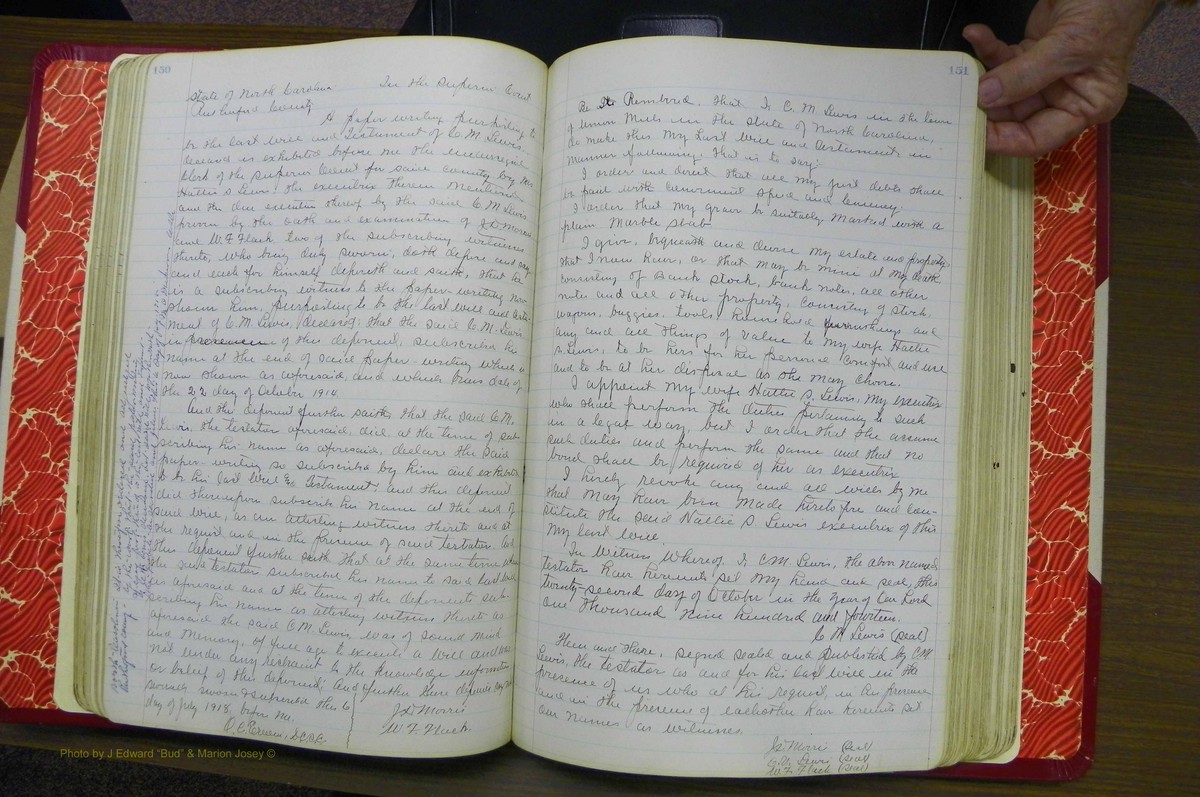 150
State of North Carolina In the Superior Court
Rutherford County
A paper writing purporting to
be the last will and Testament of C. M. Lewis
deceased is exhibited before me the undersigned
Clerk of the Superior Court for said county by Mrs
Hattie S Lewis, the executrix therein mentioned
and the due execution thereof by the said C. M. Lewis
proven by the oath and examination of J. D. Morris
and W. F. Flack two of the subscribing witnesses
thereto, who being duly sworn, doth depose and say
and each for himself deposeth and saith, that he
is a subscribing witness to the paper-writing now
shown him, purporting to be the last will and testa-
ment of C. M. Lewis, deceased; that the said C. M. Lewis
in presence of this deponent, subscribed his
name at the end of said paper-writing which is
now shown as aforesaid, and which bears date of
the 22 day of October 1914
And the deponent further saith that the said C. M.
Lewis, the testator aforesaid, did, at the time of sub-
scribing his name as aforesaid, declare the said
paper-writing so subscribed by him and exhibited
to be his last Will & Testament: and this deponent
did thereupon subscribe his name at the end of
said will, as an attesting witness thereto and at
the request and in the presence of said testator. And
this deponent further saith that at the same time when
the said testator subscribed his name to said last will
as aforesaid and at the time of the deponents sub-
scribing his name as attesting witness thereto as
aforesaid the said C. M. Lewis, was of sound mind
and memory, of full age to execute a will and was
not under any restraint to the knowledge information
or belief of this deponent; and further these deponents say not
severally sworn & subscribed this 6
day of July 1918, before me.
J. D. Morris
W. F. Flack
151
Be It Rembred, that I C. M. Lewis in the town
of Union Mills in the State of North Carolina,
do make this My Last will and testament in
manner following, that is to say:
I order and direct that all my just debts shall
be paid with convenient speed and
I order that my grave be suitably marked with a
plain Marble Slab
I give, bequeath and devise my estate and property
that I now have, or that may be mine at my death
consisting of Bank stock, bank notes, all other
notes and all other property, consisting of stock,
wagon, buggies, tools, household furnishings and
any and all things of value to My wife Hattie
S. Lewis, to be hers for her personal comfort and use
and to be at her disposal as she may choose.
I appoint my wife Hattie S. Lewis, my executrix
who shall perform the duties pertaining to such
in a legal way, but I order that she assume
such duties and perform the same and that no
bond shall be required of her as executrix
I hereby revoke any and all wills by me
that may have been made heretofore and con-
stitute the said Hattie S. Lewis executrix of this
my last will.
In Witness Whereof, I, C. M. Lewis, the above named
testator have hereunto set my hand and seal, this
twenty-second day of October in the year of our Lord
one thousand nine hundred and fourteen.
C. M. Lewis (Seal)
Then and there, signed sealed and published by C. M.
Lewis, the testator as and for his last will in the
presence of us who at his request, in his presence
and in the presence of eachother have hereunto set
our names as witnesses.
J. D. Morris (Seal)
Lewis (Seal)
W. F. Flack (Seal)
Photo by J Edward "Bud" & Marion Josey ©